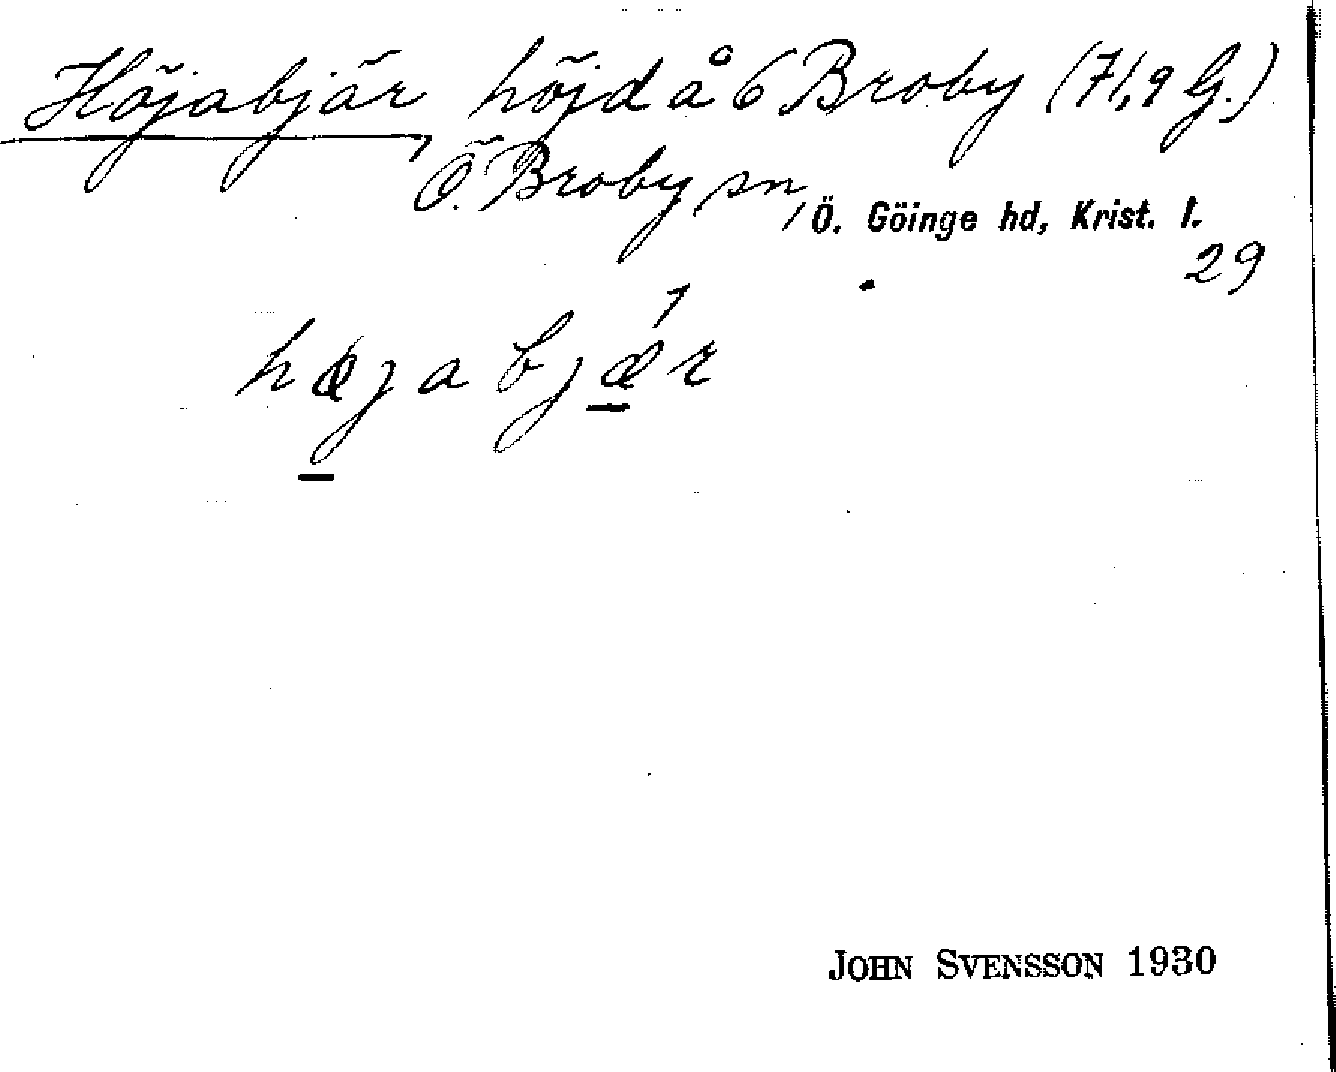 Höjabjär, höjd å 6 Broby (71,9 G.)
Ö. Broby sn, Ö. Göinge hd, Krist. l.
29
hœjabjǽr
JOHN SVENSSON 1930